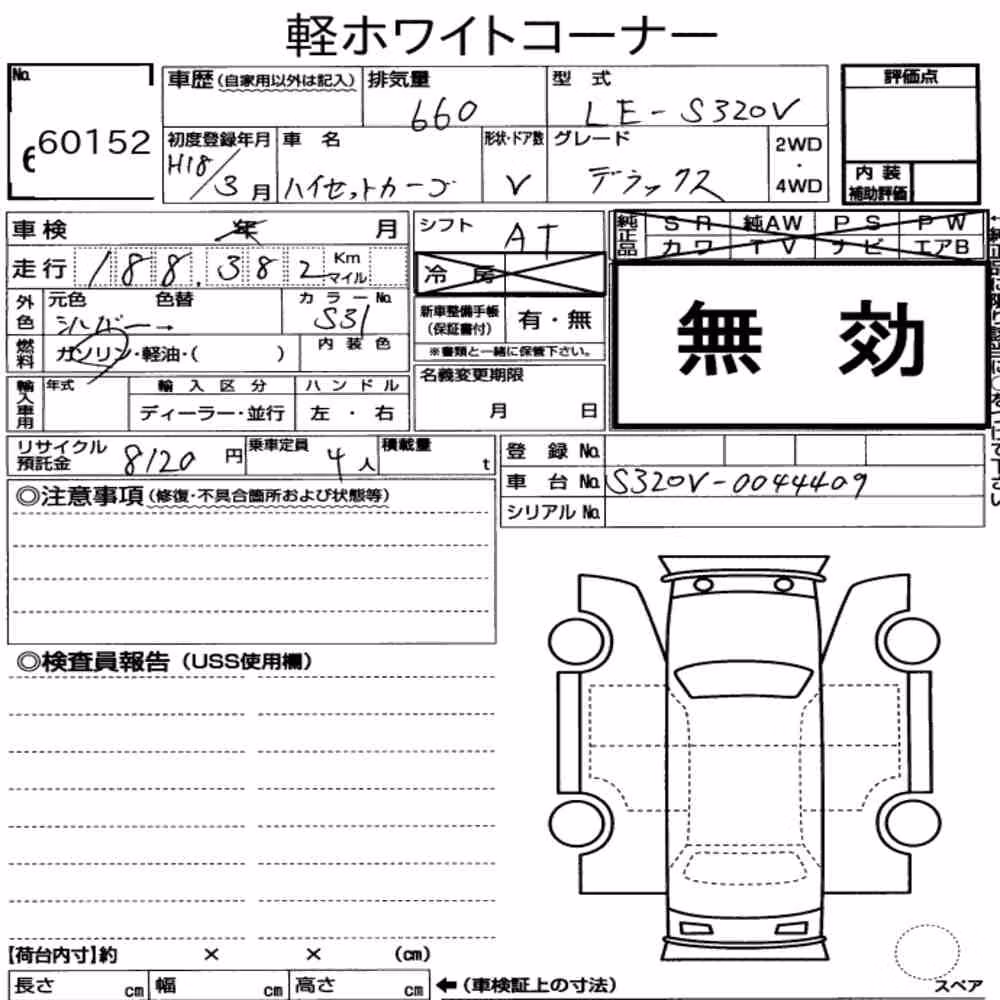 軽ホワイトコーナー
No.
60152
車歴(自家用以外は記入)
排気量
660
型 式
LE-S320V
評価点
初度登録年月
H18/3月
車 名
ハイゼットカーゴ
形状・ドア数
V
グレード
デラックス
2WD
・
4WD
内 装
補助評価
車検 年 月
シフト
AT
純正品
S R 純AW P S P W
カワ T V ナビ エアB
走行 188,382 Km
マイル
冷 房
無 効
外色
元色 色替
シルバー→
カラーNo.
S31
新車整備手帳
(保証書付)
有・無
※書類と一緒に保管下さい。
燃料
ガソリン・軽油・( )
内 装 色
名義変更期限
月 日
輸入車用
年式
輸 入 区 分
ディーラー・並行
ハ ン ド ル
左 ・ 右
リサイクル
預託金
8120 円
乗車定員
4 人
積載量
t
登 録 No.
車 台 No. S320V-0044409
シリアル No.
◎注意事項(修復・不具合箇所および状態等)
◎検査員報告(USS使用欄)
【荷台内寸】約 × × (cm)
長さ cm 幅 cm 高さ cm ←(車検証上の寸法)
スペア